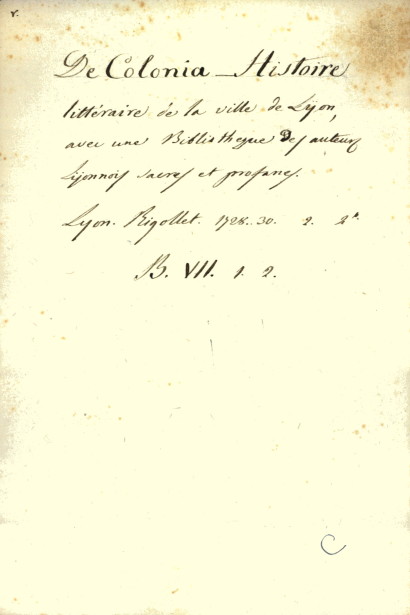 8.
De Colonia _ Histoire
littéraire de la ville de Lyon,
avec une Bibliotheque Des auteurs
Lyonnois sacres et profanes.
Lyon. Rigollet. 1728.30. 2. 2°.
B. VII. 1. 2.
C